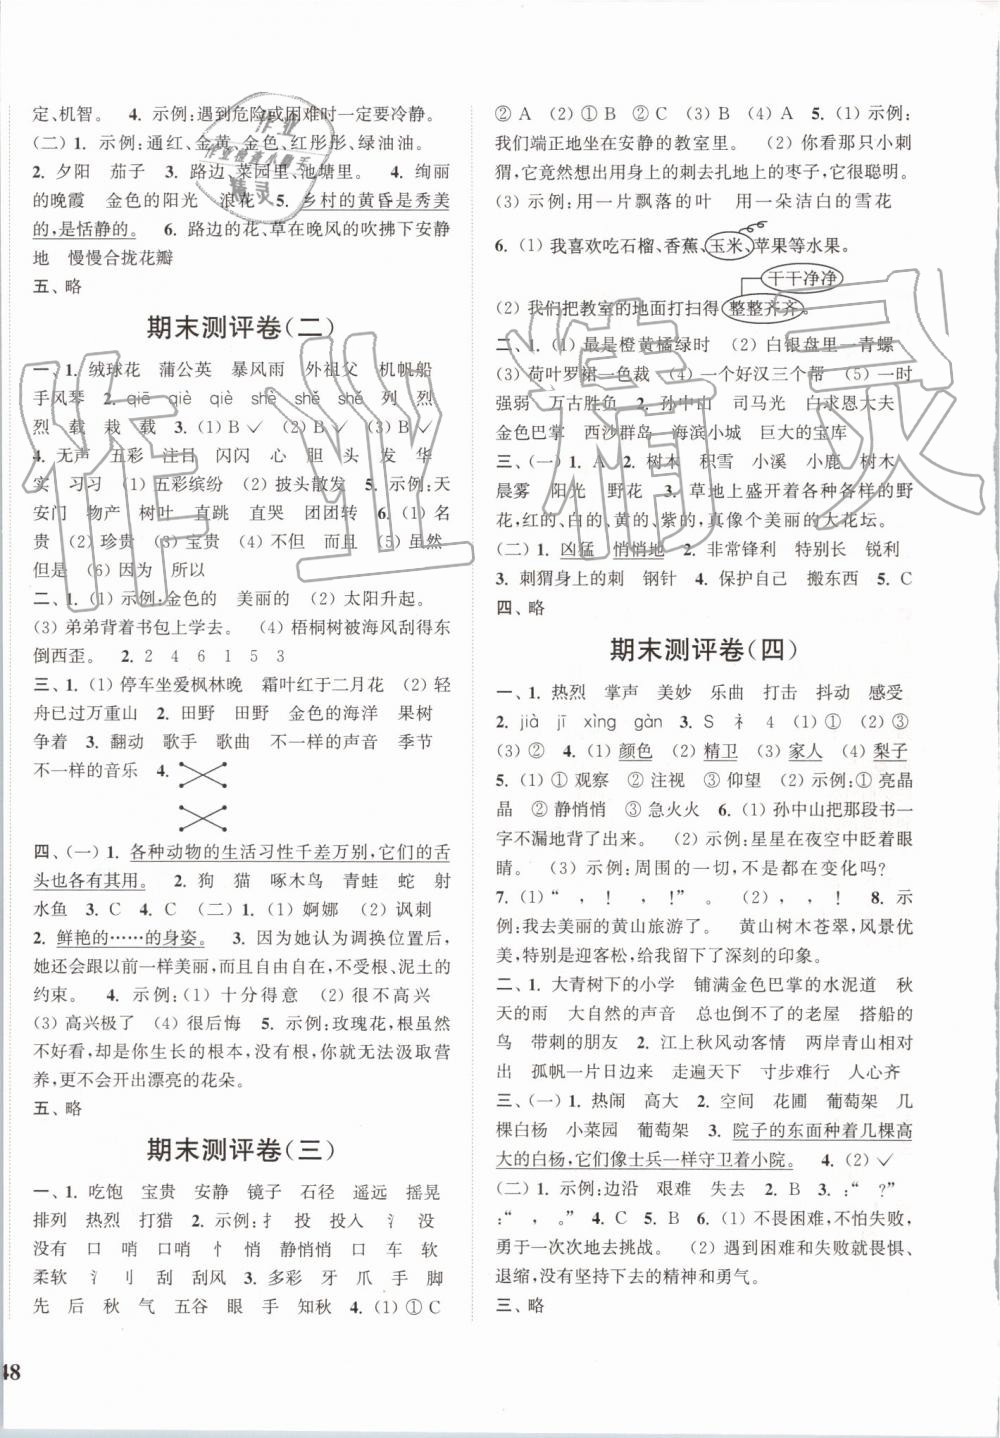 定、机智。 4. 示例:遇到危险或困难时一定要冷静。
(二) 1. 示例:通红、金黄、金色、红彤彤、绿油油。
2. 夕阳 茄子 3. 路边、菜园里、池塘里。 4. 绚丽
的晚霞 金色的阳光 浪花 5. 乡村的黄昏是秀美
的,是恬静的。 6. 路边的花、草在晚风的吹拂下安静
地 慢慢合拢花瓣
五、略
期末测评卷(二)
一、1. 绒球花 蒲公英 暴风雨 外祖父 机帆船
手风琴 2. qiē qiè qiè shè shě shě 列 烈
烈 载 栽 载 3. (1) B✓ (2) B✓ (3) B✓
4. 无声 五彩 注目 闪闪 心 胆 头 发 华
实 习习 (1) 五彩缤纷 (2) 披头散发 5. 示例:天
安门 物产 树叶 直跳 直哭 团团转 6. (1) 名
贵 (2) 珍贵 (3) 宝贵 (4) 不但 而且 (5) 虽然
但是 (6) 因为 所以
二、1. (1) 示例:金色的 美丽的 (2) 太阳升起。
(3) 弟弟背着书包上学去。 (4) 梧桐树被海风刮得东
倒西歪。 2. 2 4 6 1 5 3
三、1. (1) 停车坐爱枫林晚 霜叶红于二月花 (2) 轻
舟已过万重山 2. 田野 田野 金色的海洋 果树
争着 3. 翻动 歌手 歌曲 不一样的声音 季节
不一样的音乐 4.
四、(一) 1. 各种动物的生活习性千差万别,它们的舌
头也各有其用。 2. 狗 猫 啄木鸟 青蛙 蛇 射
水鱼 3. C 4. C (二) 1. (1) 婀娜 (2) 讽刺
2. 鲜艳的……的身姿。 3. 因为她认为调换位置后,
她还会跟以前一样美丽,而且会不受根、老枝、泥土的
约束。 4. 示例:(1) 十分得意 (2) 很不高兴
(3) 高兴极了 (4) 很后悔 5. 示例:玫瑰花,根虽然
不好看,却是你生长的根本,没有根,你就无法汲取营
养,更不会开出漂亮的花朵。
五、略
期末测评卷(三)
一、1. 吃饱 宝贵 安静 镜子 石径 遥远 摇晃
排列 热烈 打猎 2. 示例:扌 投 投入 氵 没
没有 口 哨 口哨 忄 悄 静悄悄 口 车 软
柔软 氵 刂 刮 刮风 3. 多彩 牙 爪 手 脚
先 后 秋 气 五谷 眼 手 知秋 4. (1) ① C
48
② A (2) ① B ② C (3) B (4) A 5. (1) 示例:
我们端正地坐在安静的教室里。 (2) 示例:小刺
猬,它竟然想出用身上的刺去扎地上的枣子,它很聪明。
(3) 示例:用一片飘落的叶 用一朵洁白的雪花
6. (1) 我喜欢吃石榴、香蕉、玉米、苹果等水果。
干干净净
(2) 我们把教室的地面打扫得整整齐齐。
二、1. (1) 最是橙黄橘绿时 (2) 白银盘里一青螺
(3) 荷叶罗裙一色裁 (4) 一个好汉三个帮 (5) 一时
强弱 万古胜负 2. 孙中山 司马光 白求恩大夫
金色巴掌 西沙群岛 海滨小城 巨大的宝库
三、(一) 1. A 2. 树木 积雪 小溪 小鹿 树木
晨雾 阳光 野花 3. 草地上盛开着各种各样的野
花,红的、白的、黄的、紫的,真像个美丽的大花坛。
(二) 1. 凶猛 悄悄地 2. 非常锋利 特别长 锐利
3. 刺猬身上的刺 钢针 4. 保护自己 搬东西 5. C
四、略
期末测评卷(四)
一、1. 热烈 掌声 美妙 乐曲 打击 抖动 感受
2. jià jī xìng gàn 3. S 礻 4 (1) ① (2) ③
(3) ② 4. (1) 颜色 (2) 精卫 (3) 家人 (4) 梨子
5. (1) ① 观察 ② 注视 ③ 仰望 (2) 示例:① 亮晶
晶 ② 静悄悄 ③ 急火火 6. (1) 孙中山把那段书一
字不漏地背了出来。 (2) 示例:星星在夜空中眨着眼
睛。 (3) 示例:周围的一切,不是都在变化吗?
7. (1)“ , ! , !”。 (2) , , ! 8. 示
例:我去美丽的黄山旅游了。 黄山树木苍翠,风景优
美,特别是迎客松,给我留下了深刻的印象。
二、1. 大青树下的小学 铺满金色巴掌的水泥道 秋
天的雨 大自然的声音 总也倒不了的老屋 搭船的
鸟 带刺的朋友 2. 江上秋风动客情 两岸青山相对
出 孤帆一片日边来 走遍天下 寸步难行 人心齐
三、(一) 1. 热闹 高大 2. 空间 花圃 葡萄架 几
棵白杨 小菜园 葡萄架 3. 院子的东面种着几棵高
大的白杨,它们像士兵一样守卫着小院。 4. (2) ✓
(二) 1. 示例:边沿 艰难 失去 2. B 3. :“ ?”
:“ , 。” 4. C 5. B 6. (1) 不畏困难,不怕失败,
勇于一次次地去挑战。 (2) 遇到困难与失败就畏惧、
退缩,没有坚持下去的精神和勇气。
三、略